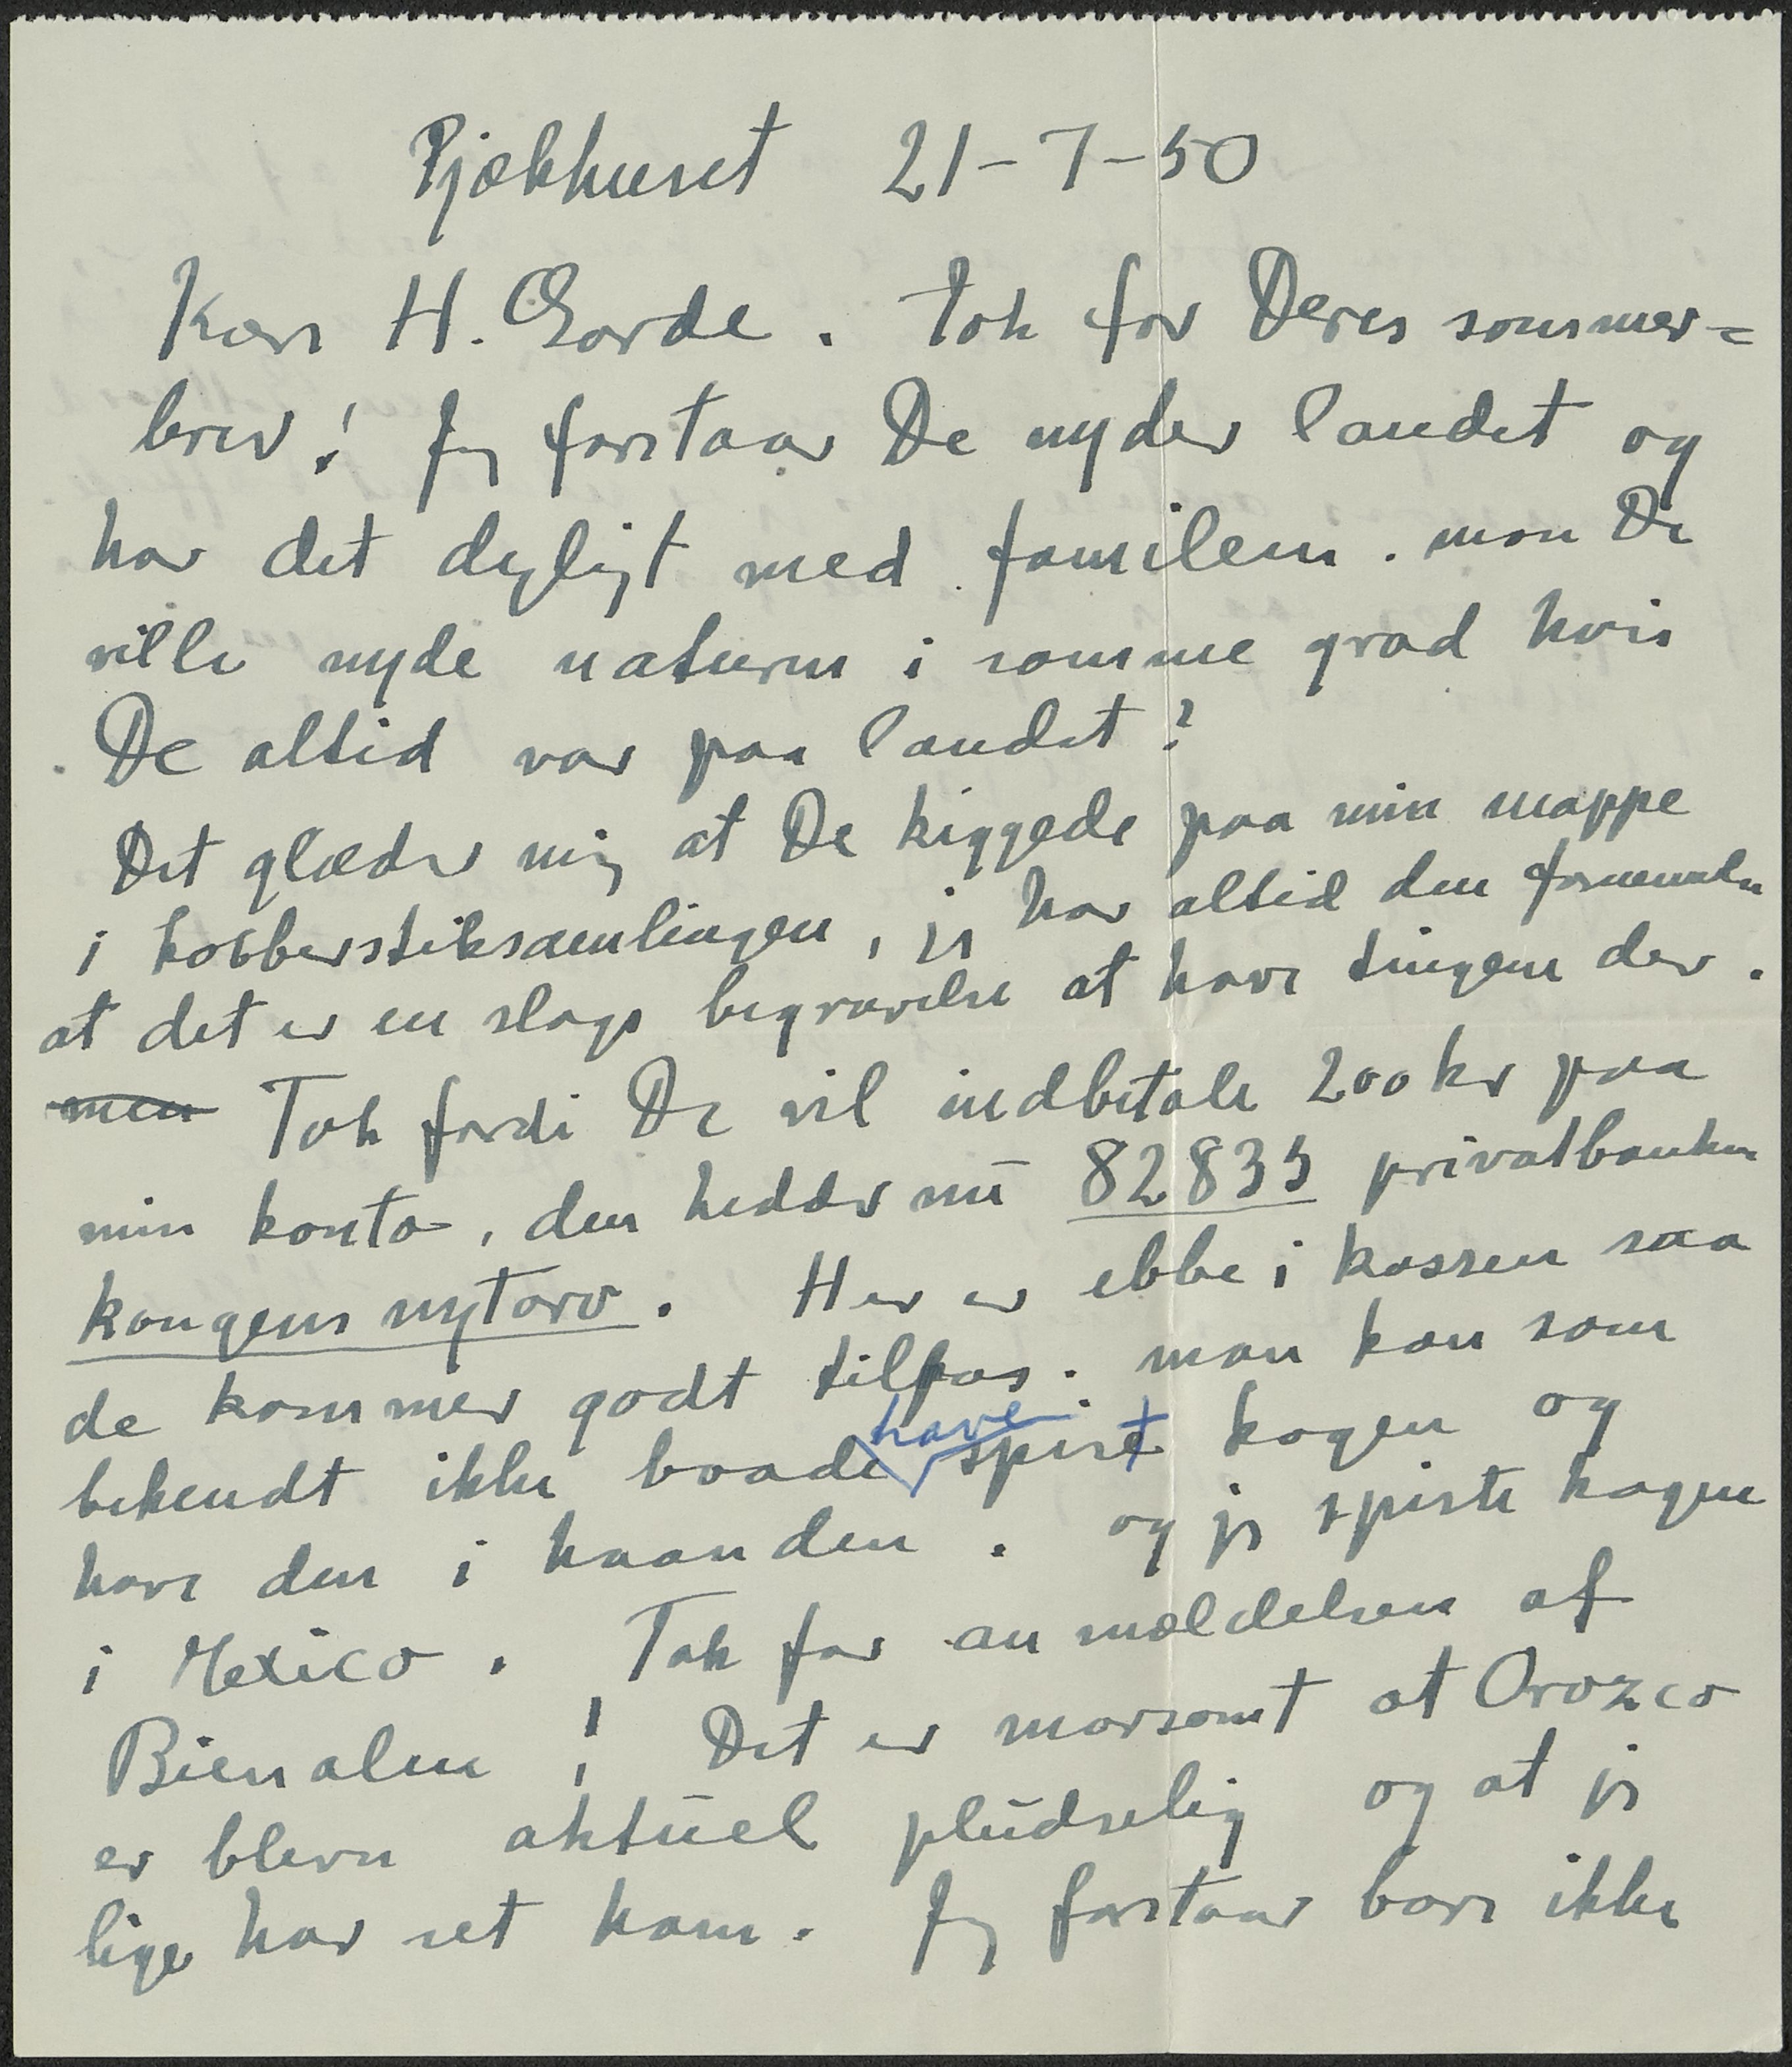 Pjækhuset 21-7-50
Kære H. Garde. Tak for Deres sommer=
brev! Jeg forstaar De nyder landet og
har det dejligt med familien. mon De
ville nyde naturen i samme grad hvis
De altid var paa landet?
Det glæder mig at De kiggede paa min mappe
i kobberstiksamlingen, jeg har altid den fornemmelse
at det er en slags begravelse at have tingene der.
men Tak fordi De vil indbetale 200 kr paa
min konto, den hedder nu 82835 privatbanken
kongens nytorv. Her er ebbe i kassen saa
de kommer godt tilpas. man kan som
bekendt ikke baade have spist kagen og
have den i haanden. og jeg spiste kagen
i Mexico. Tak for anmeldelsen af
Bienalen! Det er morsomt at Orozco
er bleven aktuel pludselig og at jeg
lige har set ham. Jeg forstaar bare ikke